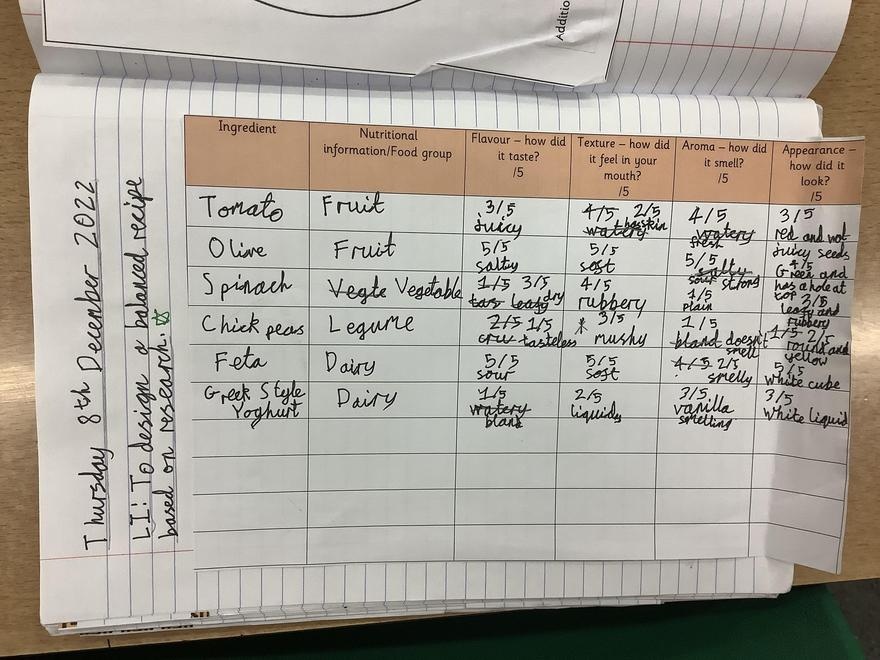 Additio
Thursday 8th December 2022
LI: To design a balanced recipe
based on research.
Ingredient
Nutritional
information/Food group
Flavour – how did
it taste?
/5
Texture – how did
it feel in your
mouth?
/5
Aroma – how did
it smell?
/5
Appearance –
how did it
look?
/5
Tomato
Fruit
3/5
juicy
4/5 2/5
watery
has skin
4/5
watery
fresh
3/5
red and wot
juicy seeds
Olive
Fruit
5/5
salty
5/5
soft
5/5
salty
sour strong
4/5
Green and
has a hole at
top
Spinach
Vegte Vegetable
1/5 3/5
tas leafy dry
4/5
rubbery
4/5
plain
3/5
leafy and
rubbery
Chick peas
Legume
2/5 1/5
cru tasteless
3/5
mushy
1/5
bland doesn't
smell
1/5 2/5
round and
yellow
Feta
Dairy
5/5
sour
5/5
soft
4/5 2/5
smelly
5/5
white cube
Greek Style
Yoghurt
Dairy
1/5
watery
blank
2/5
liquidy
3/5
vanilla
smelling
3/5
White liquid